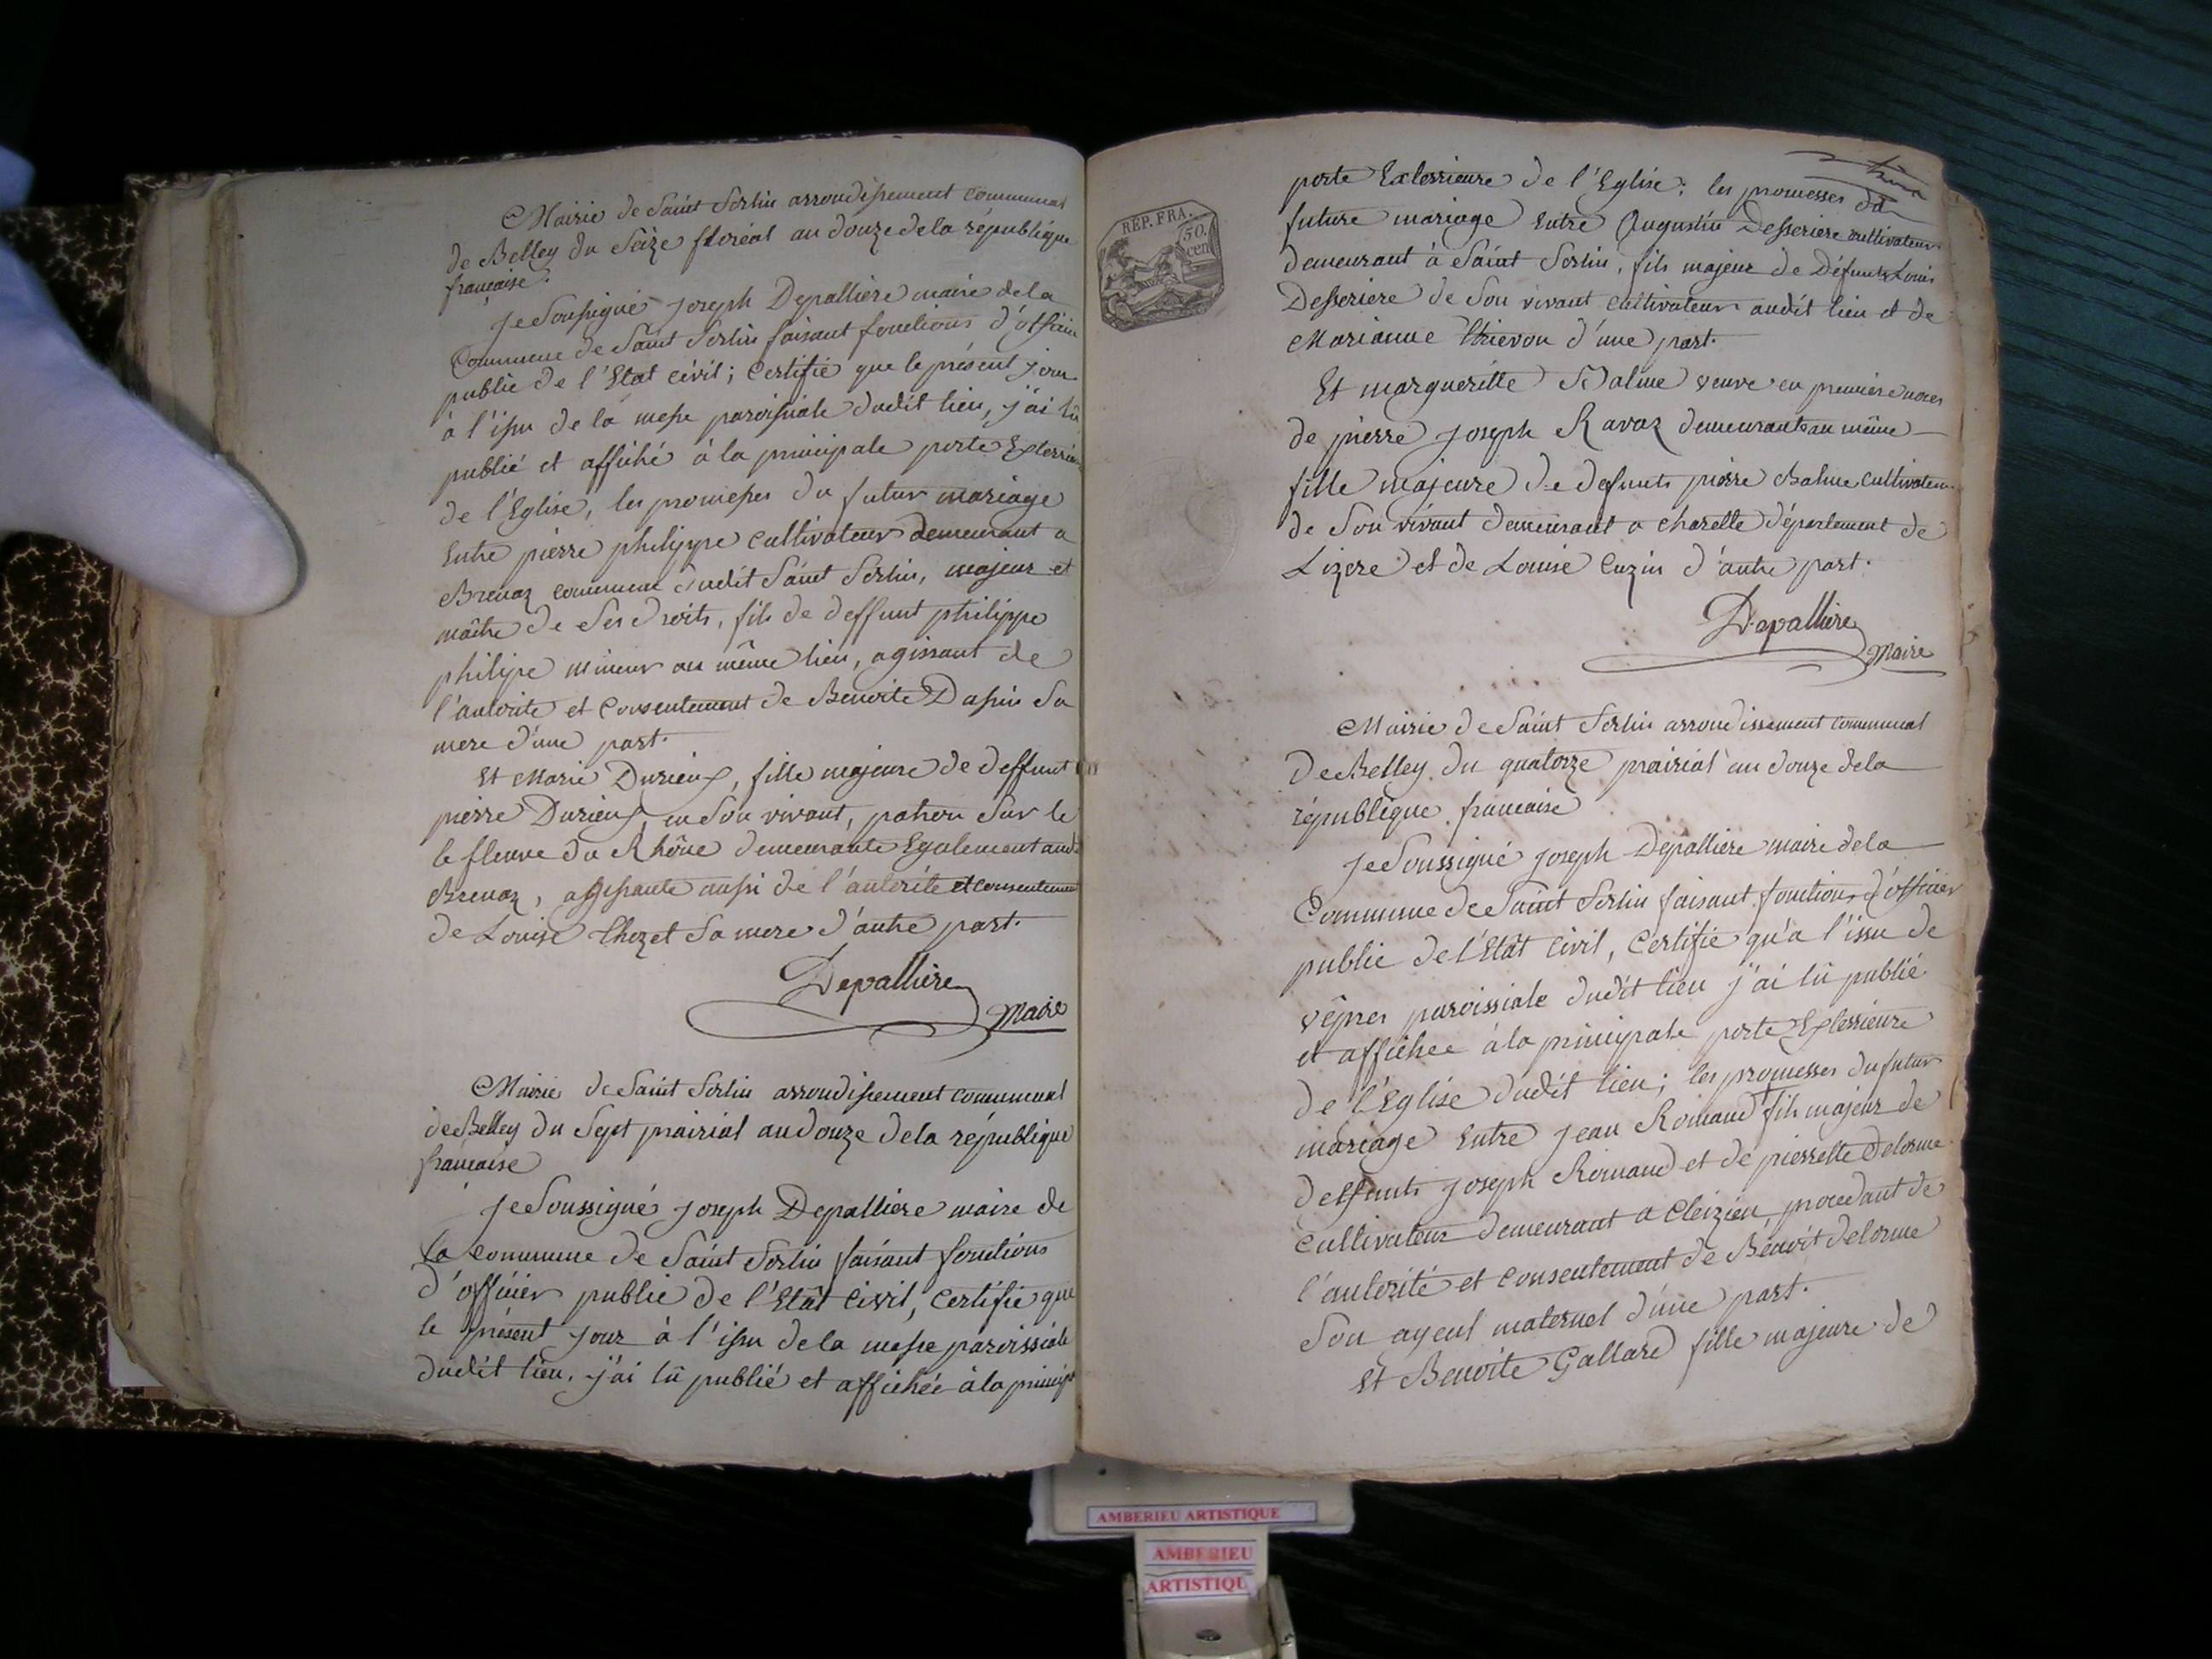 Mairie de Saint Sorlin arrondissement communal
de Belley du Seize floréal an douze de la république
française.
Je Soussigné Joseph Depalliere maire de la
Commune de Saint Sorlin faisant fonctions d'officier
public de l'Etat civil ; Certifie que le présent jour
à l'issu de la messe paroissiale dudit lieu, j'ai lû
publié et affiché à la principale porte Exterrieure
de l'Eglise, les promesses du futur mariage
Entre pierre philippe cultivateur demeurant a
Brenaz commune dudit Saint Sorlin, majeur et
maître de Ses droits, fils de deffunt philippe
philipe mineur au même lieu, agissant de
l'autorité et Consentement de Benoite Dassin Sa
mere d'une part.
Et Marie Durieux, fille majeure de deffunt
pierre Durieux, en Son vivant, patron Sur le
le fleuve du Rhône demeurante Egalement aud.
Brenaz, agissante aussi de l'autorité et consentement
de Louise Chozet Sa mere d'autre part.
Depalliere
Maire
Mairie de Saint Sorlin arrondissement communal
de Belley du Sept prairial an douze de la république
francaise
Je Soussigné Joseph Depalliere maire de
la commune de Saint Sorlin faisant fonctions
d'officier public de l'Etat Civil, Certifie que
le présent jour à l'issu de la messe paroissiale
dudit lieu, j'ai lû publié et affichée à la princip
REP. FRA.
50.
cen
porte Exterrieure de l'Eglise ; les promesses du
future mariage Entre Augustin Desseriere cultivateur
demeurant à Saint Sorlin, fils majeur de Défunts Louis
Desseriere de Son vivant cultivateur audit lieu et de
Marianne Thievon d'une part.
Et margueritte Balme veuve en premiere noces
de pierre Joseph Ravaz demeurante au même
fille majeure de defunts pierre Balme cultivateur
de Son vivant demeurant a charette département de
Lizere et de Louise Cuzin d'autre part.
Depalliere
Maire
Mairie de Saint Sorlin arrondissement communal
de Belley du quatorze prairial an douze de la
république francaise
Je Soussigné Joseph Depalliere maire de la
Commune de Saint Sorlin faisant fonctions d'officier
public de l'Etat Civil, Certifie qu'a l'issu de
vêpres paroissiale dudit lieu j'ai lû publié
et affichee à la principale porte Exterrieure
de l'Eglise dudit lieu ; les promesses du futur
mariage Entre Jean Romand fils majeur de
deffunts Joseph Romand et de pierrette Delorme
Cultivateur demeurant a Cleizieu, procedant de
l'autorité et consentement de Benoit Delorme
Son ayeul maternel d'une part.
Et Benoite Gallard fille majeure de
AMBERIEU ARTISTIQUE
AMBERIEU
ARTISTIQU